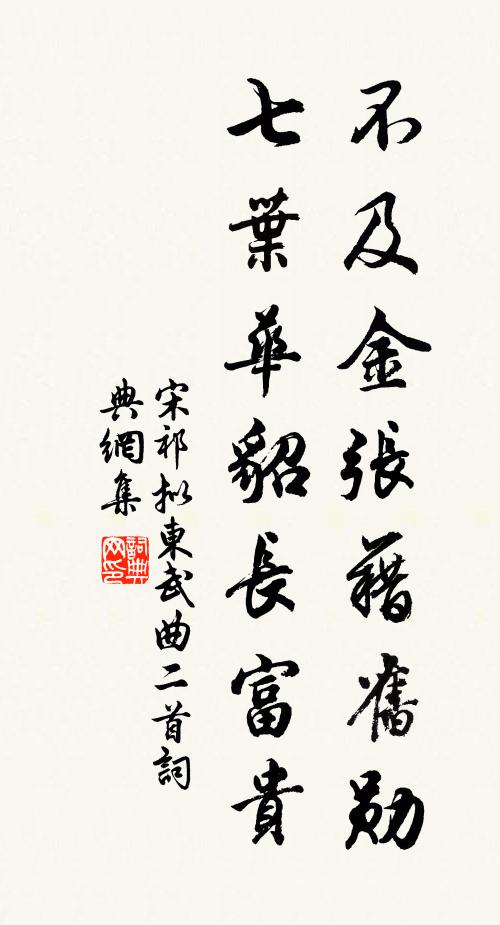 不及金張藉舊勛
七葉華貂長富貴
宋祁拟東武曲二首詞
典網集
詞典
网印